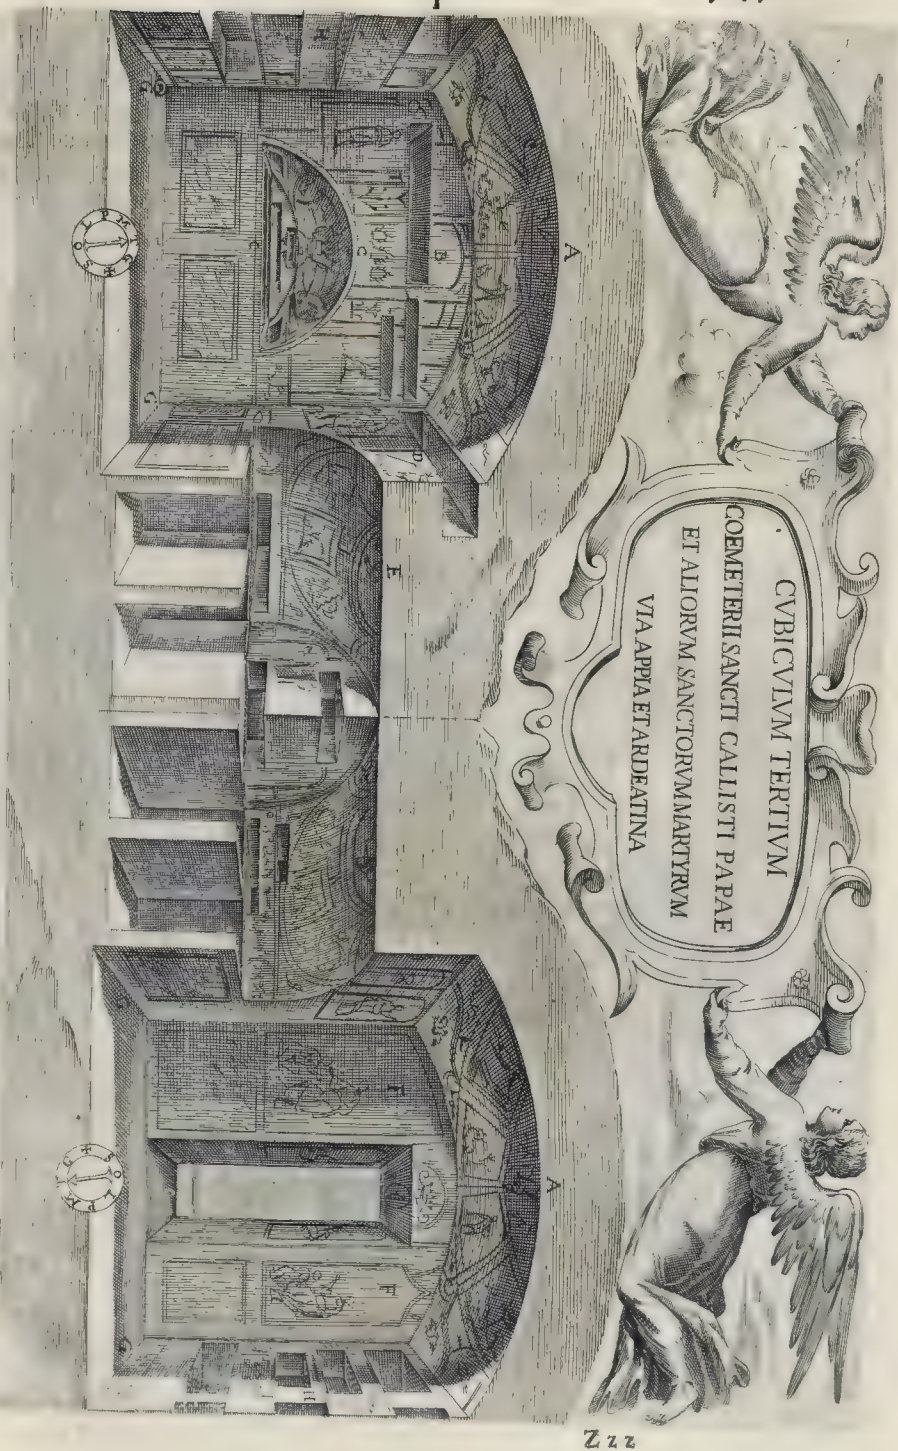 CVBICVLVM TERTIVM
COEMETERII SANCTI CALLISTI PAPAE
ET ALIORVM SANCTORVM MARTYRVM
VIA APPIA ET ARDEATINA
A
A
B
C
C
D
E
F
F
G
G
H
H
Zzz